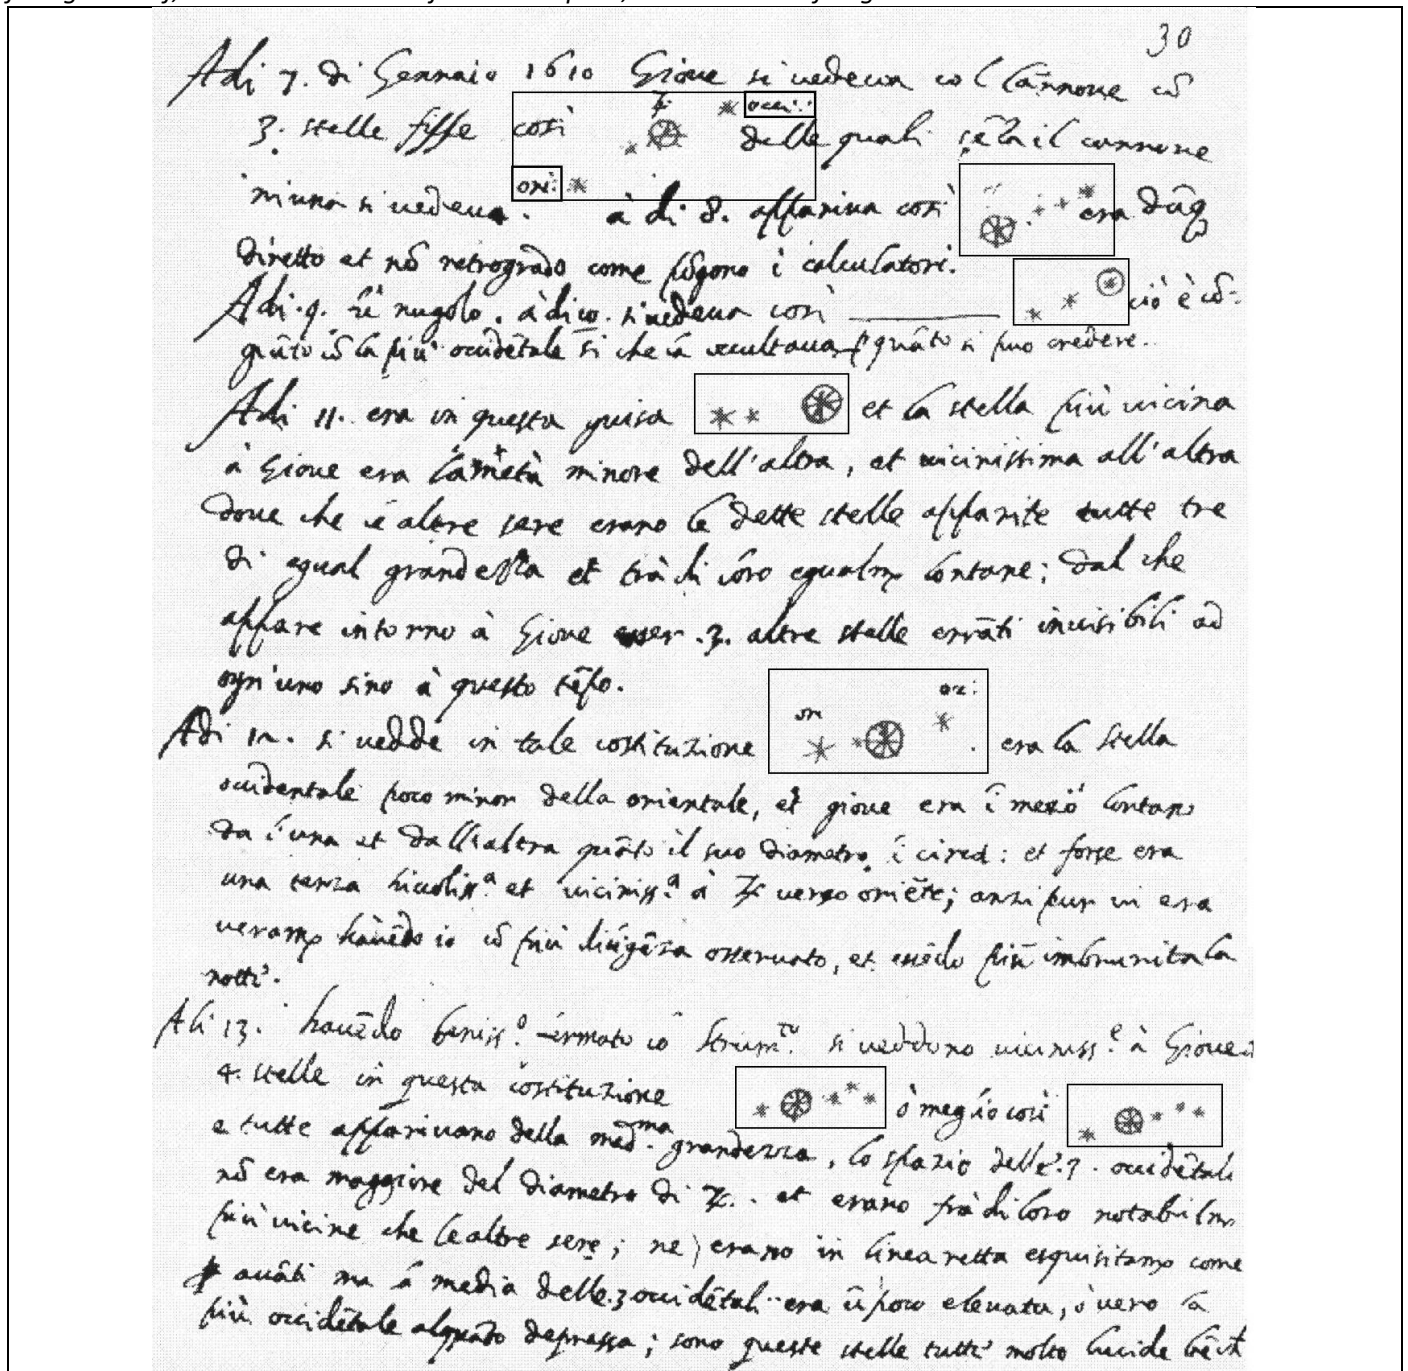 30
Adi 7. di Gennaio 1610 Giove si vedeva col Cannone cō
3. stelle fisse così ori: occi: delle quali sēza il cannone
niuna si vedeva. à di 8. appariva così era dūq
diretto et nō retrogrado come pōgono i calculatori.
Adi 9. fù nugolo. à di 10. si vedeva così ciò è cō-
giūto cō la più occidētale si che la occultava p quāto si puo credere.
Adi 11. era in questa guisa et la stella più vicina
à Giove era la metà minore dell'altra, et vicinissima all'altra
dove che le altre sere erano le dette stelle apparite tutte tre
di egual grandezza et trà di loro egualm lontane; dal che
appare intorno à Giove esser .3. altre stelle errāti invisibili ad
ogn'uno sino à questo tēpo.
Adi 12. si vedde in tale costituzione era la stella
occidentale poco minor della orientale, et giove era ī mezō lontano
da l'una et dall'altra quāto il suo diametro ī circa: et forse era
una terza piccoliss.ª et viciniss.ª à ♃ verso oriēte; anzi pur vi era
veram havēdo io cō più diligēza osservato, et essēdo più imbrunita la
notte.
Adi 13. havēdo beniss.º fermato lo strum.to si veddono viciniss.e à Giove
4. stelle in questa costituzione ò meglio così
e tutte apparivano della med.ma grandezza, lo spazio delle .3. occidētali
nō era maggiore del diametro di ♃. et erano frà di loro notabilm
più vicine che le altre sere; ne erano in linea retta esquisitam come
avāti ma la media delle .3 occidētali era ū poco elevata, ò vero la
più occidētale alquāto depressa; sono queste stelle tutte molto lucide bēchē